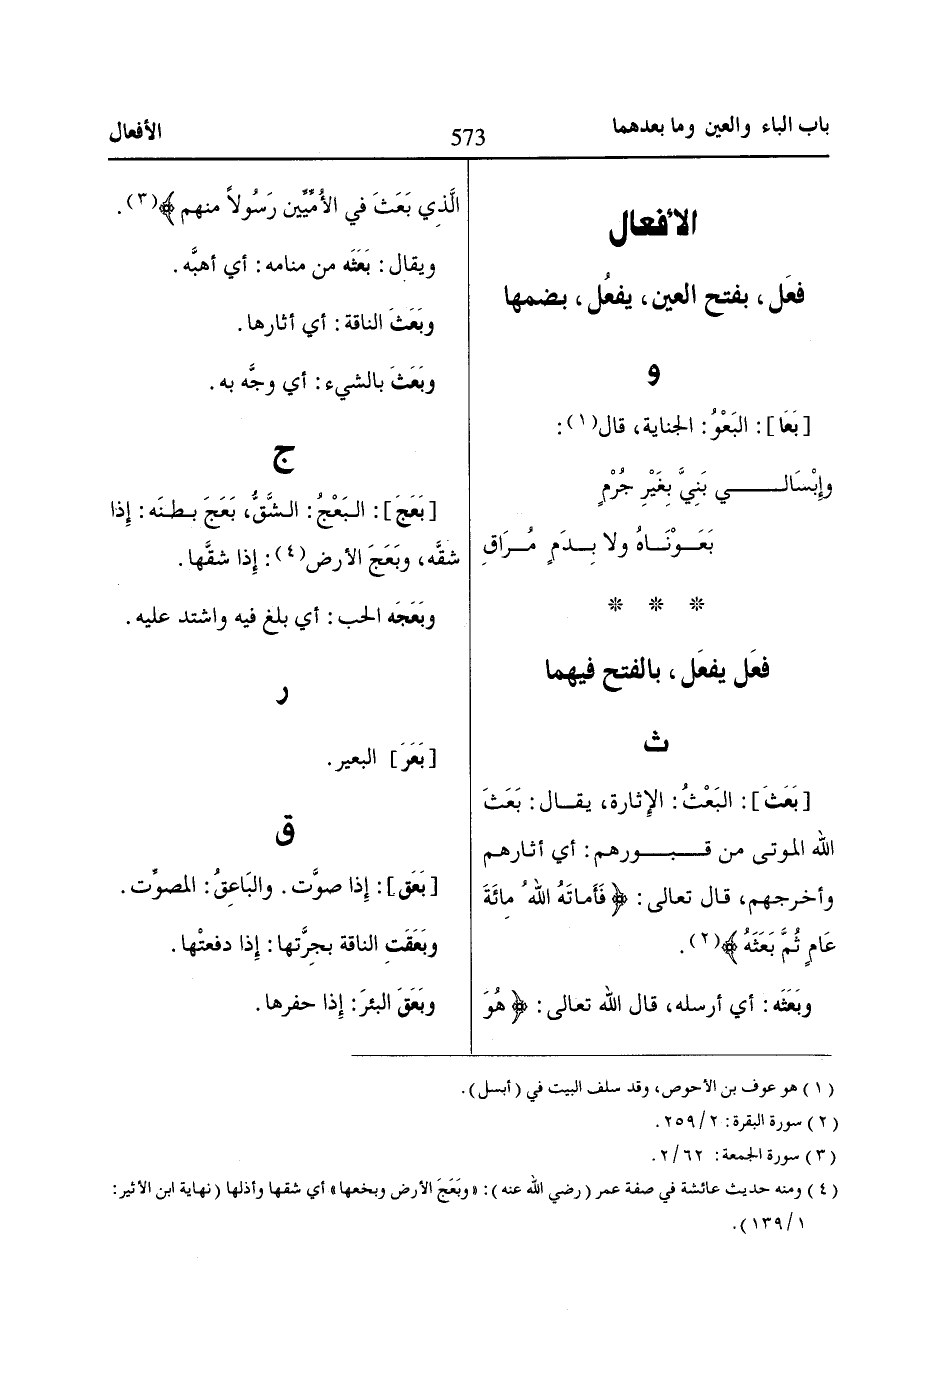 باب الباء والعين وما بعدهما
573
الأفعال
الأفعال
فعَل، بفتح العين، يفعُل، بضمها
و
[بَعَا]: البَعْوُ: الجناية، قال(١):
وإِبْسَالــــي بَنِيَّ بِغَيْرِ جُرْمٍ
بَعَــوْنَــاهُ ولا بِــدَمٍ مُــرَاقِ
* * *
فعَل يفعَل، بالفتح فيهما
ث
[بَعَثَ]: البَعْثُ: الإِثارة، يقــال: بَعَثَ
الله الموتى من قـــبـــورهم: أي أثارهم
وأخرجهم، قال تعالى: ﴿فَأَماتَهُ اللهُ مِائَةَ
عَامٍ ثُمَّ بَعَثَهُ﴾(٢).
وبَعَثَه: أي أرسله، قال الله تعالى: ﴿هُوَ
الَّذِي بَعَثَ في الأُمِّيِّين رَسُولاً منهم﴾(٣).
ويقال: بَعَثَه من منامه: أي أهبَّه.
وبَعَثَ الناقة: أي أثارها.
وبَعَثَ بالشيء: أي وجَّه به.
ج
[بَعَجَ]: الـبَعْجُ: الـشَّقُّ، بَعَجَ بـطـنَه: إِذا
شقَّه، وبَعَجَ الأرض(٤): إِذا شقَّها.
وبَعَجَه الحب: أي بلغ فيه واشتد عليه.
ر
[بَعَرَ] البعير.
ق
[بَعَق]: إِذا صوَّت. والبَاعقُ: المصوِّت.
وبَعَقَت الناقة بجرَّتها: إِذا دفعتْها.
وبَعَقَ البئرَ: إِذا حفرها.
(١) هو عوف بن الأحوص، وقد سلف البيت في (أبسل).
(٢) سورة البقرة: ٢٥٩/٢.
(٣) سورة الجمعة: ٢/٦٢.
(٤) ومنه حديث عائشة في صفة عمر (رضي الله عنه): «وبَعَجَ الأرض وبخعها» أي شقها وأذلها (نهاية ابن الأثير:
١٣٩/١).